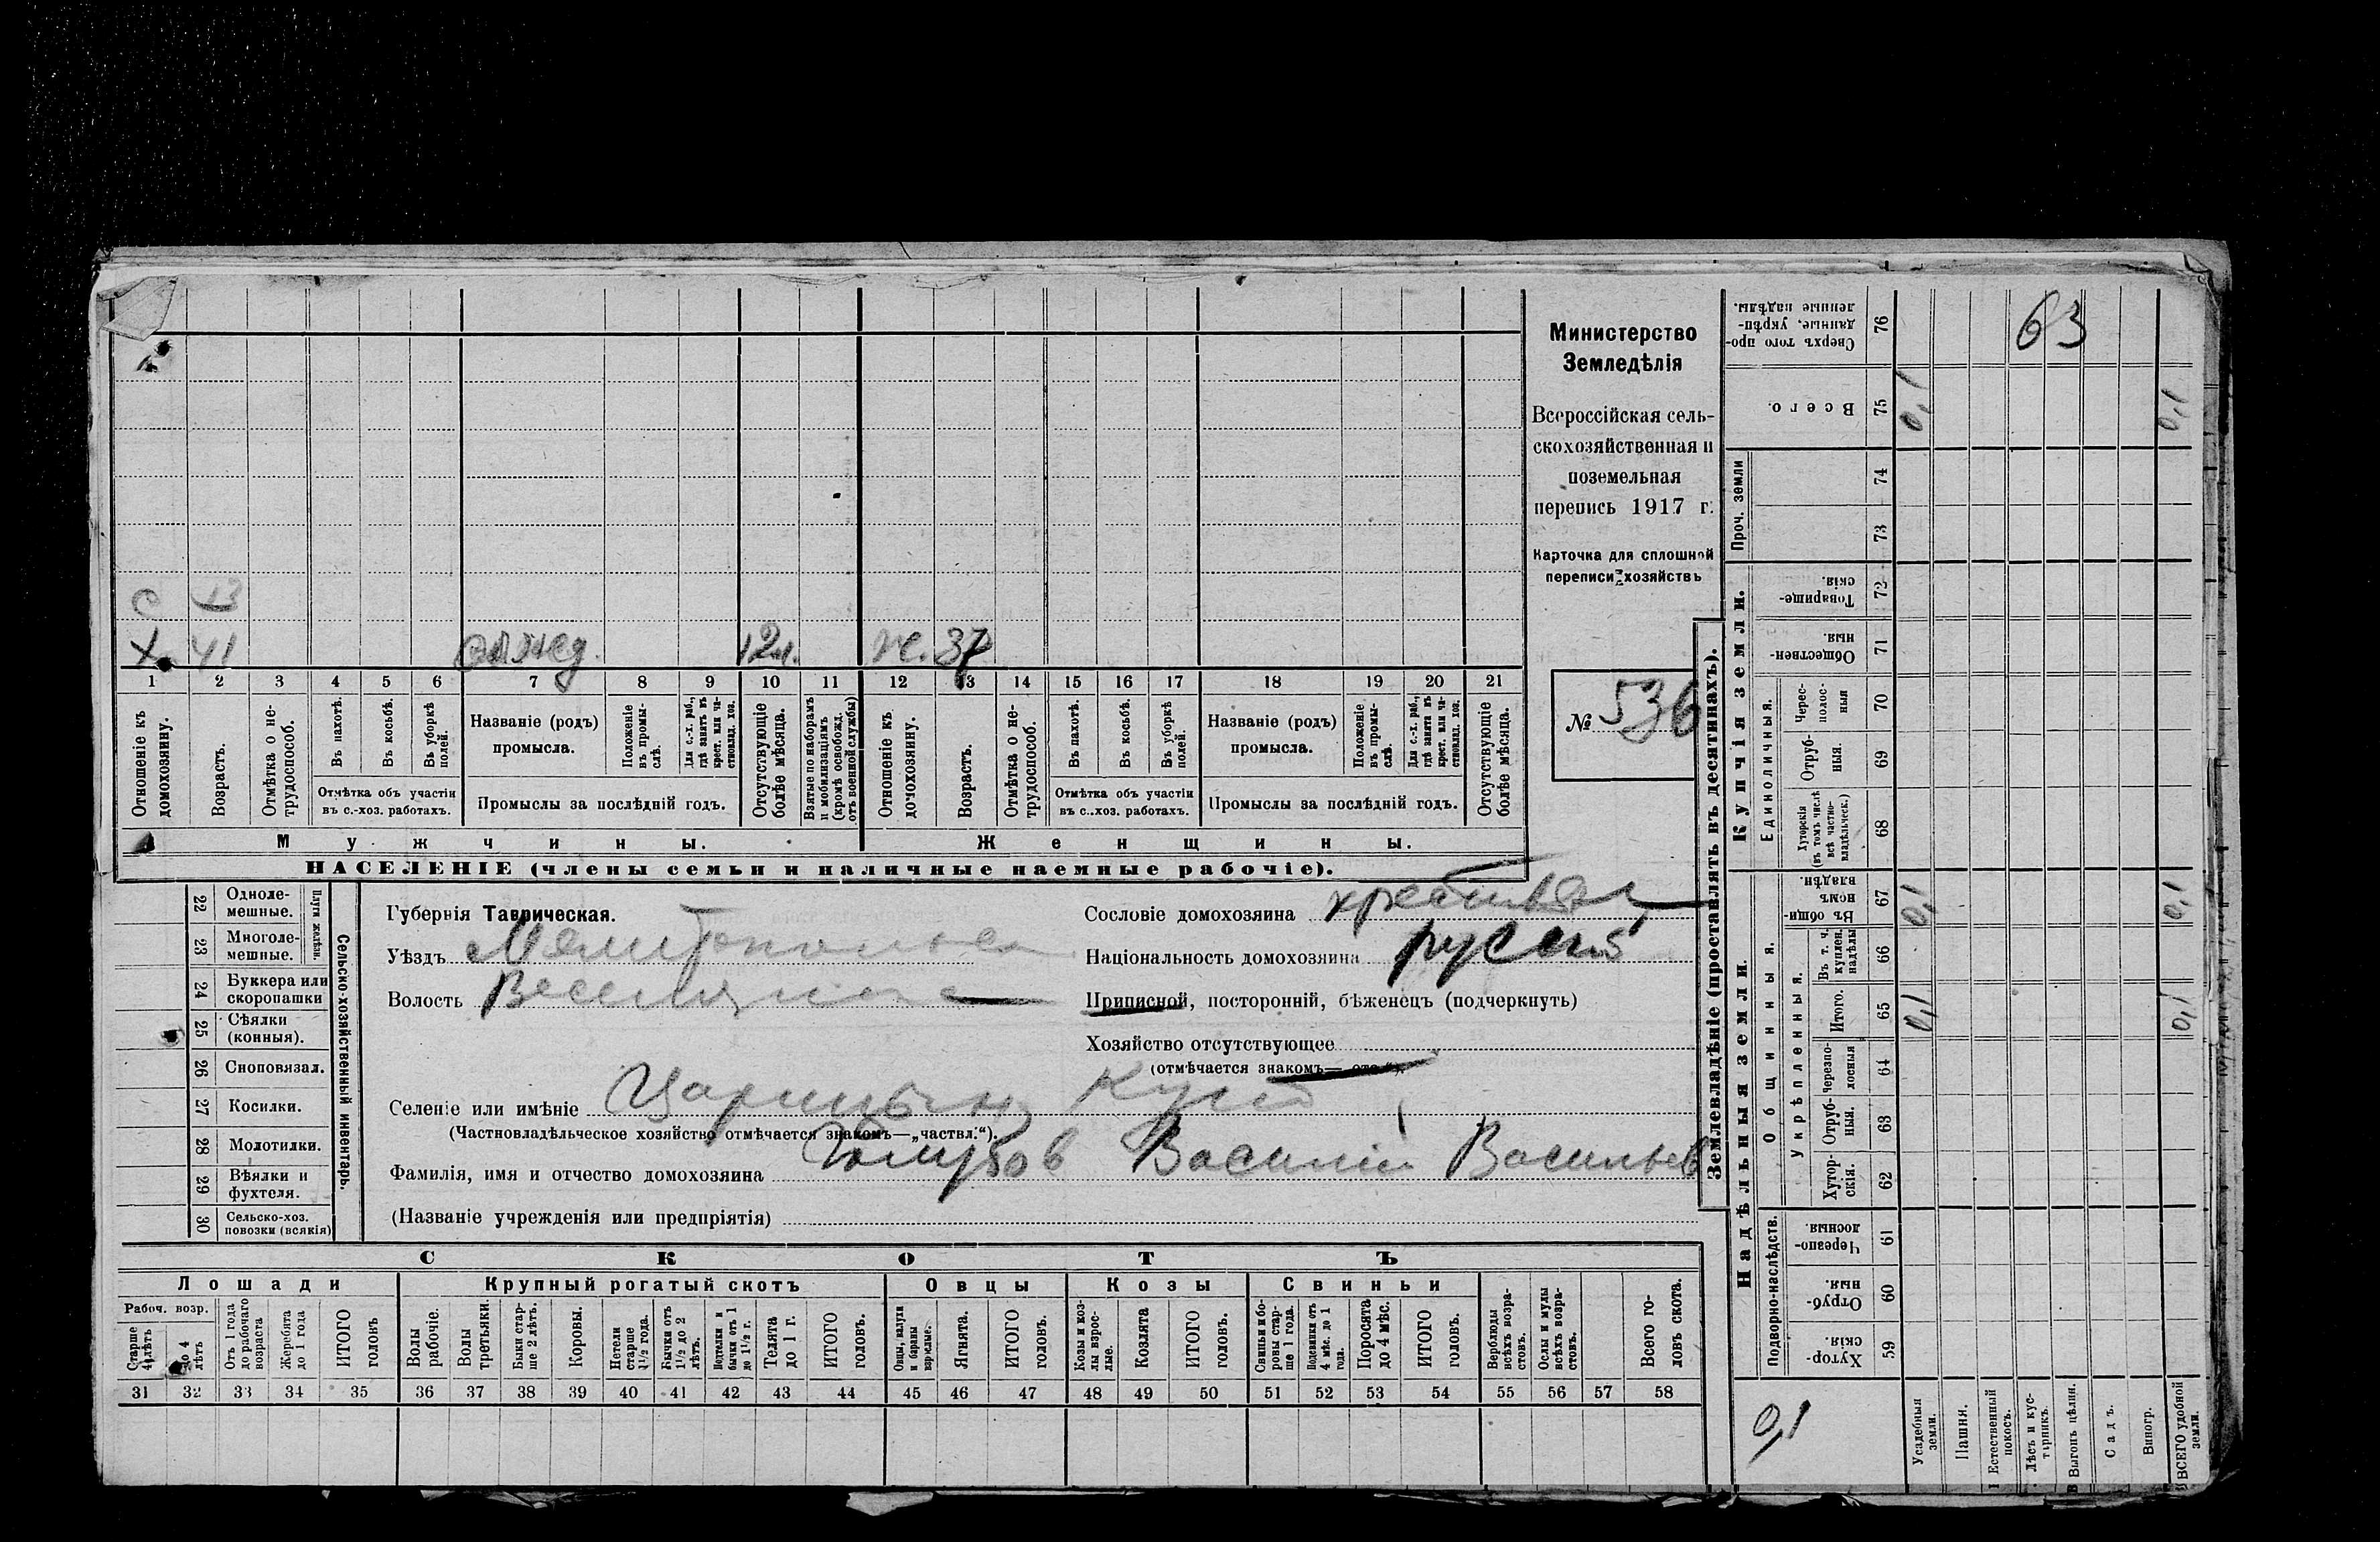 63
Министерство
Земледѣлія
Всероссійская сель-
скохозяйственная и
поземельная
перепись 1917 г.
Карточка для сплошной
переписи хозяйствъ
№ 536
с 13
х. 41 12 м. ж. 37
1 2 3 4 5 6 7 8 9 10 11 12 13 14 15 16 17 18 19 20 21
Отношеніе къ домохозяину.
Возрастъ.
Отмѣтка о не-трудоспособ.
Въ пахотѣ.
Въ косьбѣ.
Въ уборкѣ полей.
Отмѣтка объ участіи
въ с.-хоз. работахъ.
Названіе (родъ)
промысла.
Положеніе въ промы-слѣ.
Для с.-х. раб., гдѣ занятъ въ крест. или ча-стновлад. хоз.
Промыслы за послѣдній годъ.
Отсутствующіе болѣе мѣсяца.
Взятые по наборамъ и мобилизаціямъ (кромѣ освобожд. отъ военной службы)
Отношеніе къ домохозяину.
Возрастъ.
Отмѣтка о не-трудоспособ.
Въ пахотѣ.
Въ косьбѣ.
Въ уборкѣ полей.
Отмѣтка объ участіи
въ с.-хоз. работахъ.
Названіе (родъ)
промысла.
Положеніе въ промы-слѣ.
Для с.-х. раб., гдѣ занята въ крест. или ча-стновлад. хоз.
Промыслы за послѣдній годъ.
Отсутствующіе болѣе мѣсяца.
Мужчины.
Женщины.
НАСЕЛЕНІЕ (члены семьи и наличные наемные рабочіе).
Сельско-хозяйственный инвентарь.
Плуги желѣзн.
22 Одноле-мешные.
23 Многоле-мешные.
24 Буккера или скоропашки
25 Сѣялки (конныя).
26 Сноповязал.
27 Косилки.
28 Молотилки.
29 Вѣялки и фухтеля.
30 Сельско-хоз. повозки (всякія)
Губернія Таврическая.
Уѣздъ Мелитопольск
Волость Веселянская
Селеніе или имѣніе Царицынъ Кутъ
(Частновладѣльческое хозяйство отмѣчается знакомъ—„частвл.“).
Фамилія, имя и отчество домохозяина Голубов Василій Васильев
(Названіе учрежденія или предпріятія)
Сословіе домохозяина
Національность домохозяина русскій
Приписной, посторонній, бѣженецъ (подчеркнуть)
Хозяйство отсутствующее
(отмѣчается знакомъ— отс.“).
СКОТЪ
Лошади
Крупный рогатый скотъ
Овцы
Козы
Свиньи
Рабоч. возр.
Старше 4 лѣтъ
до 4 лѣтъ
Отъ 1 года до рабочаго возраста
Жеребята до 1 года
ИТОГО головъ
Волы рабочіе.
Волы третьяки.
Быки стар-ше 2 лѣтъ.
Коровы.
Нетели старше 1 1/2 года.
Бычки отъ 1 1/2 до 2 лѣтъ.
Подтелки и бычки отъ 1 до 1 1/2 г.
Телята до 1 г.
ИТОГО головъ.
Овцы, валухи и бараны взрослые.
Ягнята.
ИТОГО головъ.
Козы и коз-лы взрос-лые.
Козлята
ИТОГО головъ.
Свиньи и бо-ровы стар-ше 1 года.
Подсвинки отъ 4 мѣс. до 1 года.
Поросята до 4 мѣс.
ИТОГО головъ.
Верблюды всѣхъ возра-стовъ.
Ослы и мулы всѣхъ возра-стовъ.
Всего го-ловъ скота.
31 32 33 34 35 36 37 38 39 40 41 42 43 44 45 46 47 48 49 50 51 52 53 54 55 56 57 58
Землевладѣніе (проставлять въ десятинахъ).
Сверхъ того про-данные, укрѣп-ленные надѣлы. 76
Всего. 75 0,1 0,1
Проч. земли
74
73
Купчія земли.
Товарище-скія. 72
Обществен-ныя. 71
Единоличныя.
Черес-полос-ныя 70
Отруб-ныя. 69
Хуторскія (въ томъ числѣ всѣ частно-владѣльческ.) 68
Надѣльныя земли.
Общинныя.
Въ общин-номъ владѣн. 67 0,1 0,1
Укрѣпленныя.
Въ т. ч. куплен. надѣлы 66
Итого. 65 0,1 0,1
Черезпо-лосныя 64
Отруб-ныя. 63
Хутор-скія. 62
Подворно-наслѣдств.
Черезпо-лосныя 61
Отруб-ныя. 60
Хутор-скія. 59
0,1
Усадебныя земли.
Пашня.
Естественный покосъ.
Лѣсъ и кус-тарникъ.
Выгонъ цѣлин.
Садъ.
Виногр.
ВСЕГО удобной земли.